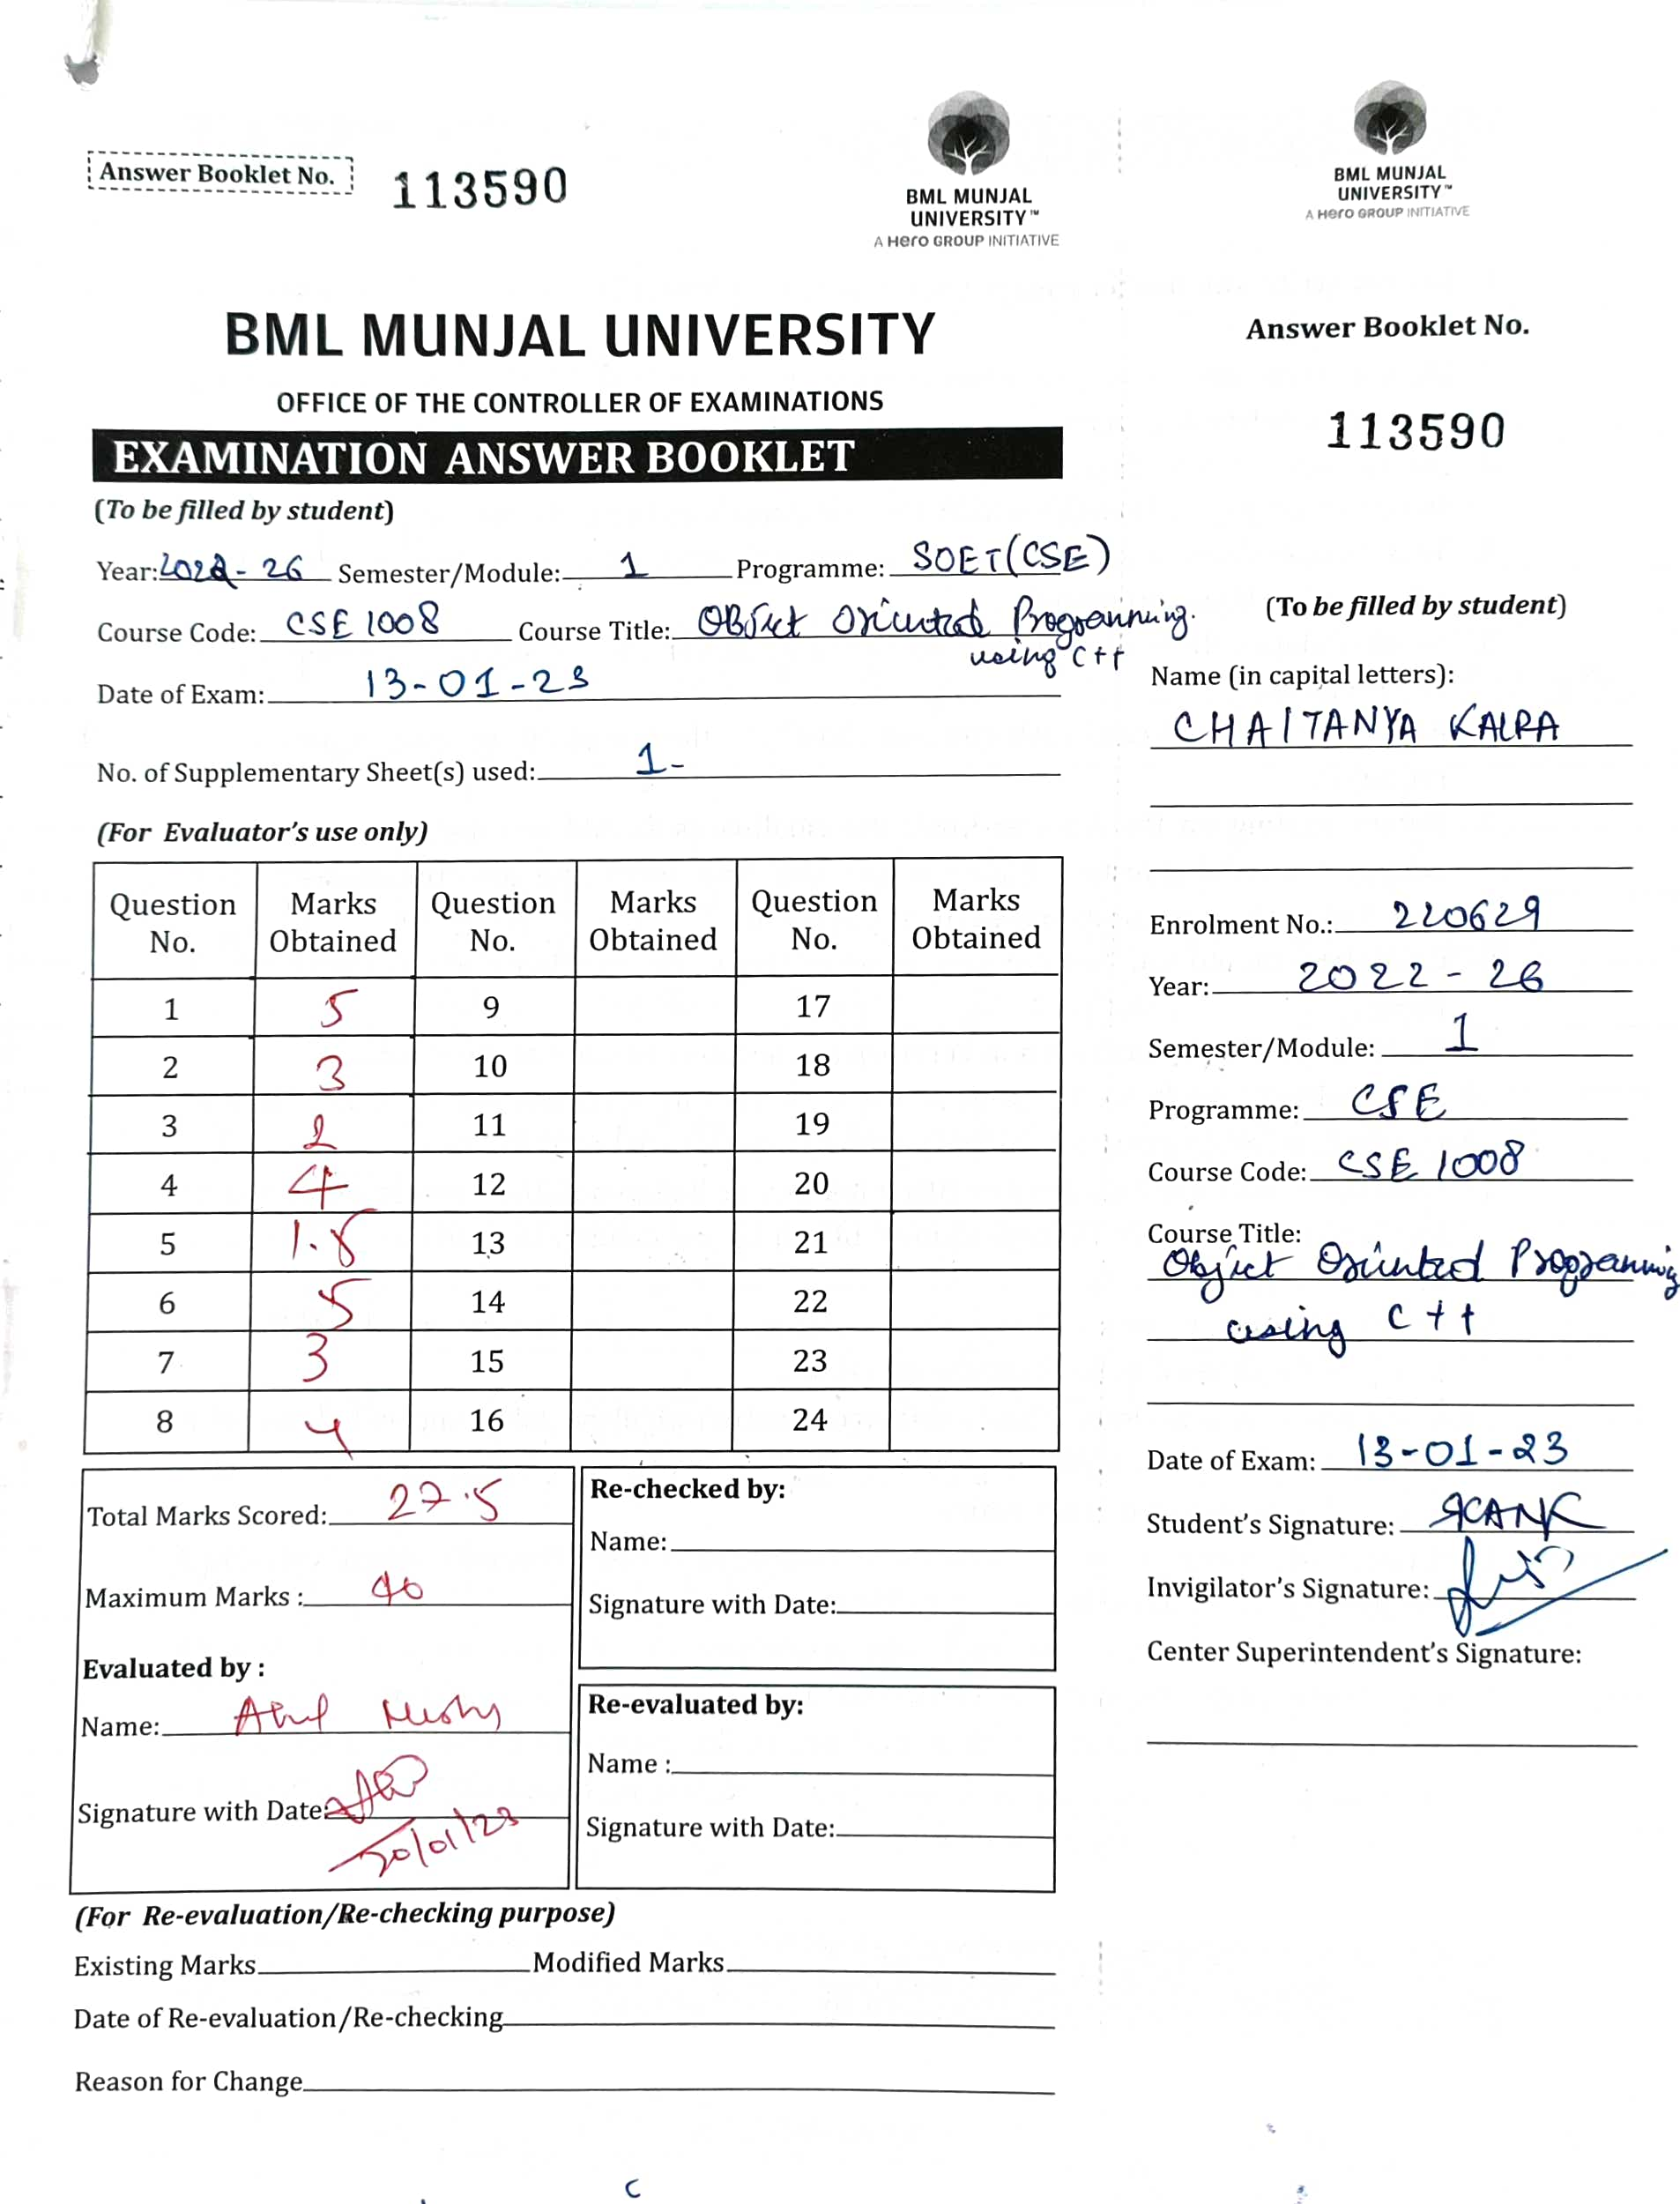 Answer Booklet No. 113590
BML MUNJAL
UNIVERSITY™
A Hero GROUP INITIATIVE
BML MUNJAL UNIVERSITY
OFFICE OF THE CONTROLLER OF EXAMINATIONS
EXAMINATION ANSWER BOOKLET
(To be filled by student)
Year: 2022-26 Semester/Module: 1 Programme: SOET(CSE)
Course Code: CSE 1008 Course Title: Object Oriented Programming
using C++
Date of Exam: 13-01-23
No. of Supplementary Sheet(s) used: 1-
(For Evaluator's use only)
Question No. Marks Obtained Question No. Marks Obtained Question No. Marks Obtained
1 5 9 17
2 3 10 18
3 2 11 19
4 4 12 20
5 1.5 13 21
6 5 14 22
7 3 15 23
8 4 16 24
Total Marks Scored: 27.5
Maximum Marks : 40
Evaluated by :
Name:
Signature with Date:
Re-checked by:
Name:
Signature with Date:
Re-evaluated by:
Name :
Signature with Date:
(For Re-evaluation/Re-checking purpose)
Existing Marks Modified Marks
Date of Re-evaluation/Re-checking
Reason for Change
BML MUNJAL
UNIVERSITY™
A Hero GROUP INITIATIVE
Answer Booklet No.
113590
(To be filled by student)
Name (in capital letters):
CHAITANYA KALRA
Enrolment No.: 220629
Year: 2022-26
Semester/Module: 1
Programme: CSE
Course Code: CSE 1008
Course Title:
Object Oriented Programming
using C++
Date of Exam: 13-01-23
Student's Signature:
Invigilator's Signature:
Center Superintendent's Signature: